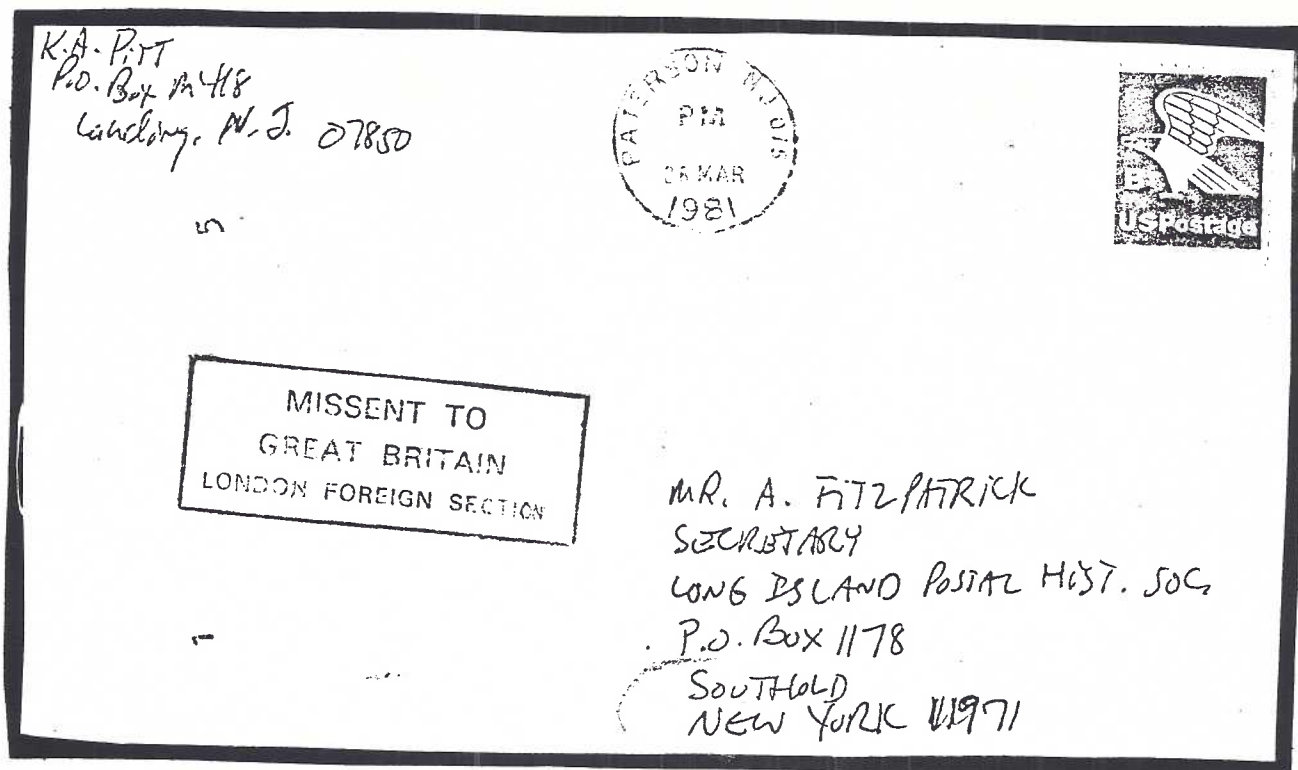 K.A. Pitt
P.O. Box M418
Landing, N.J. 07850
PATERSON NJ 075
PM
MAR
1981
B
US Postage
MISSENT TO
GREAT BRITAIN
LONDON FOREIGN SECTION
MR. A. FITZPATRICK
SECRETARY
LONG ISLAND POSTAL HIST. SOC.
P.O. BOX 1178
SOUTHOLD
NEW YORK 11971